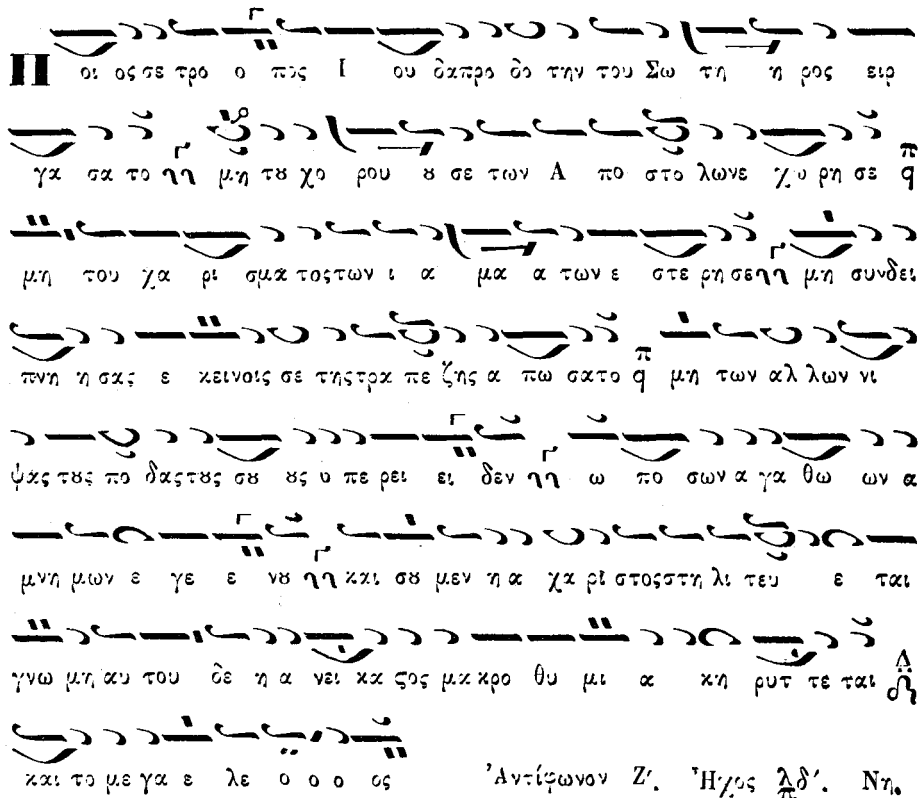 Π οι ος σε τρο ο πος Ι ου δα προ δο την του Σω τη η ρος ειρ
γα σα το μη τȣ χο ρου ȣ σε των Α πο στο λων ε χω ρη σε π q
μη του χα ρι σμα τος των ι α μα α των ε στε ρη σε μη συν δει
πνη η σας ε κεινοις σε της τρα πε ζης α πω σατο π q μη των αλ λων νι
ψας τȣς πο δας τȣς σȣ ȣς υ πε ρει ει δεν ω πο σων α γα θω ων α
μνη μων ε γε ε νȣ και σȣ μεν η α χα ρι στος στη λι τευ ε ται
γνω μη αυ του δε η α νει κα ζος μα κρο θυ μι α κη ρυτ τε ται Δ
και το με γα ε λε ο ο ο ος Ἀντίφωνον Ζʹ. Ἦχος λ π δʹ. Νη.